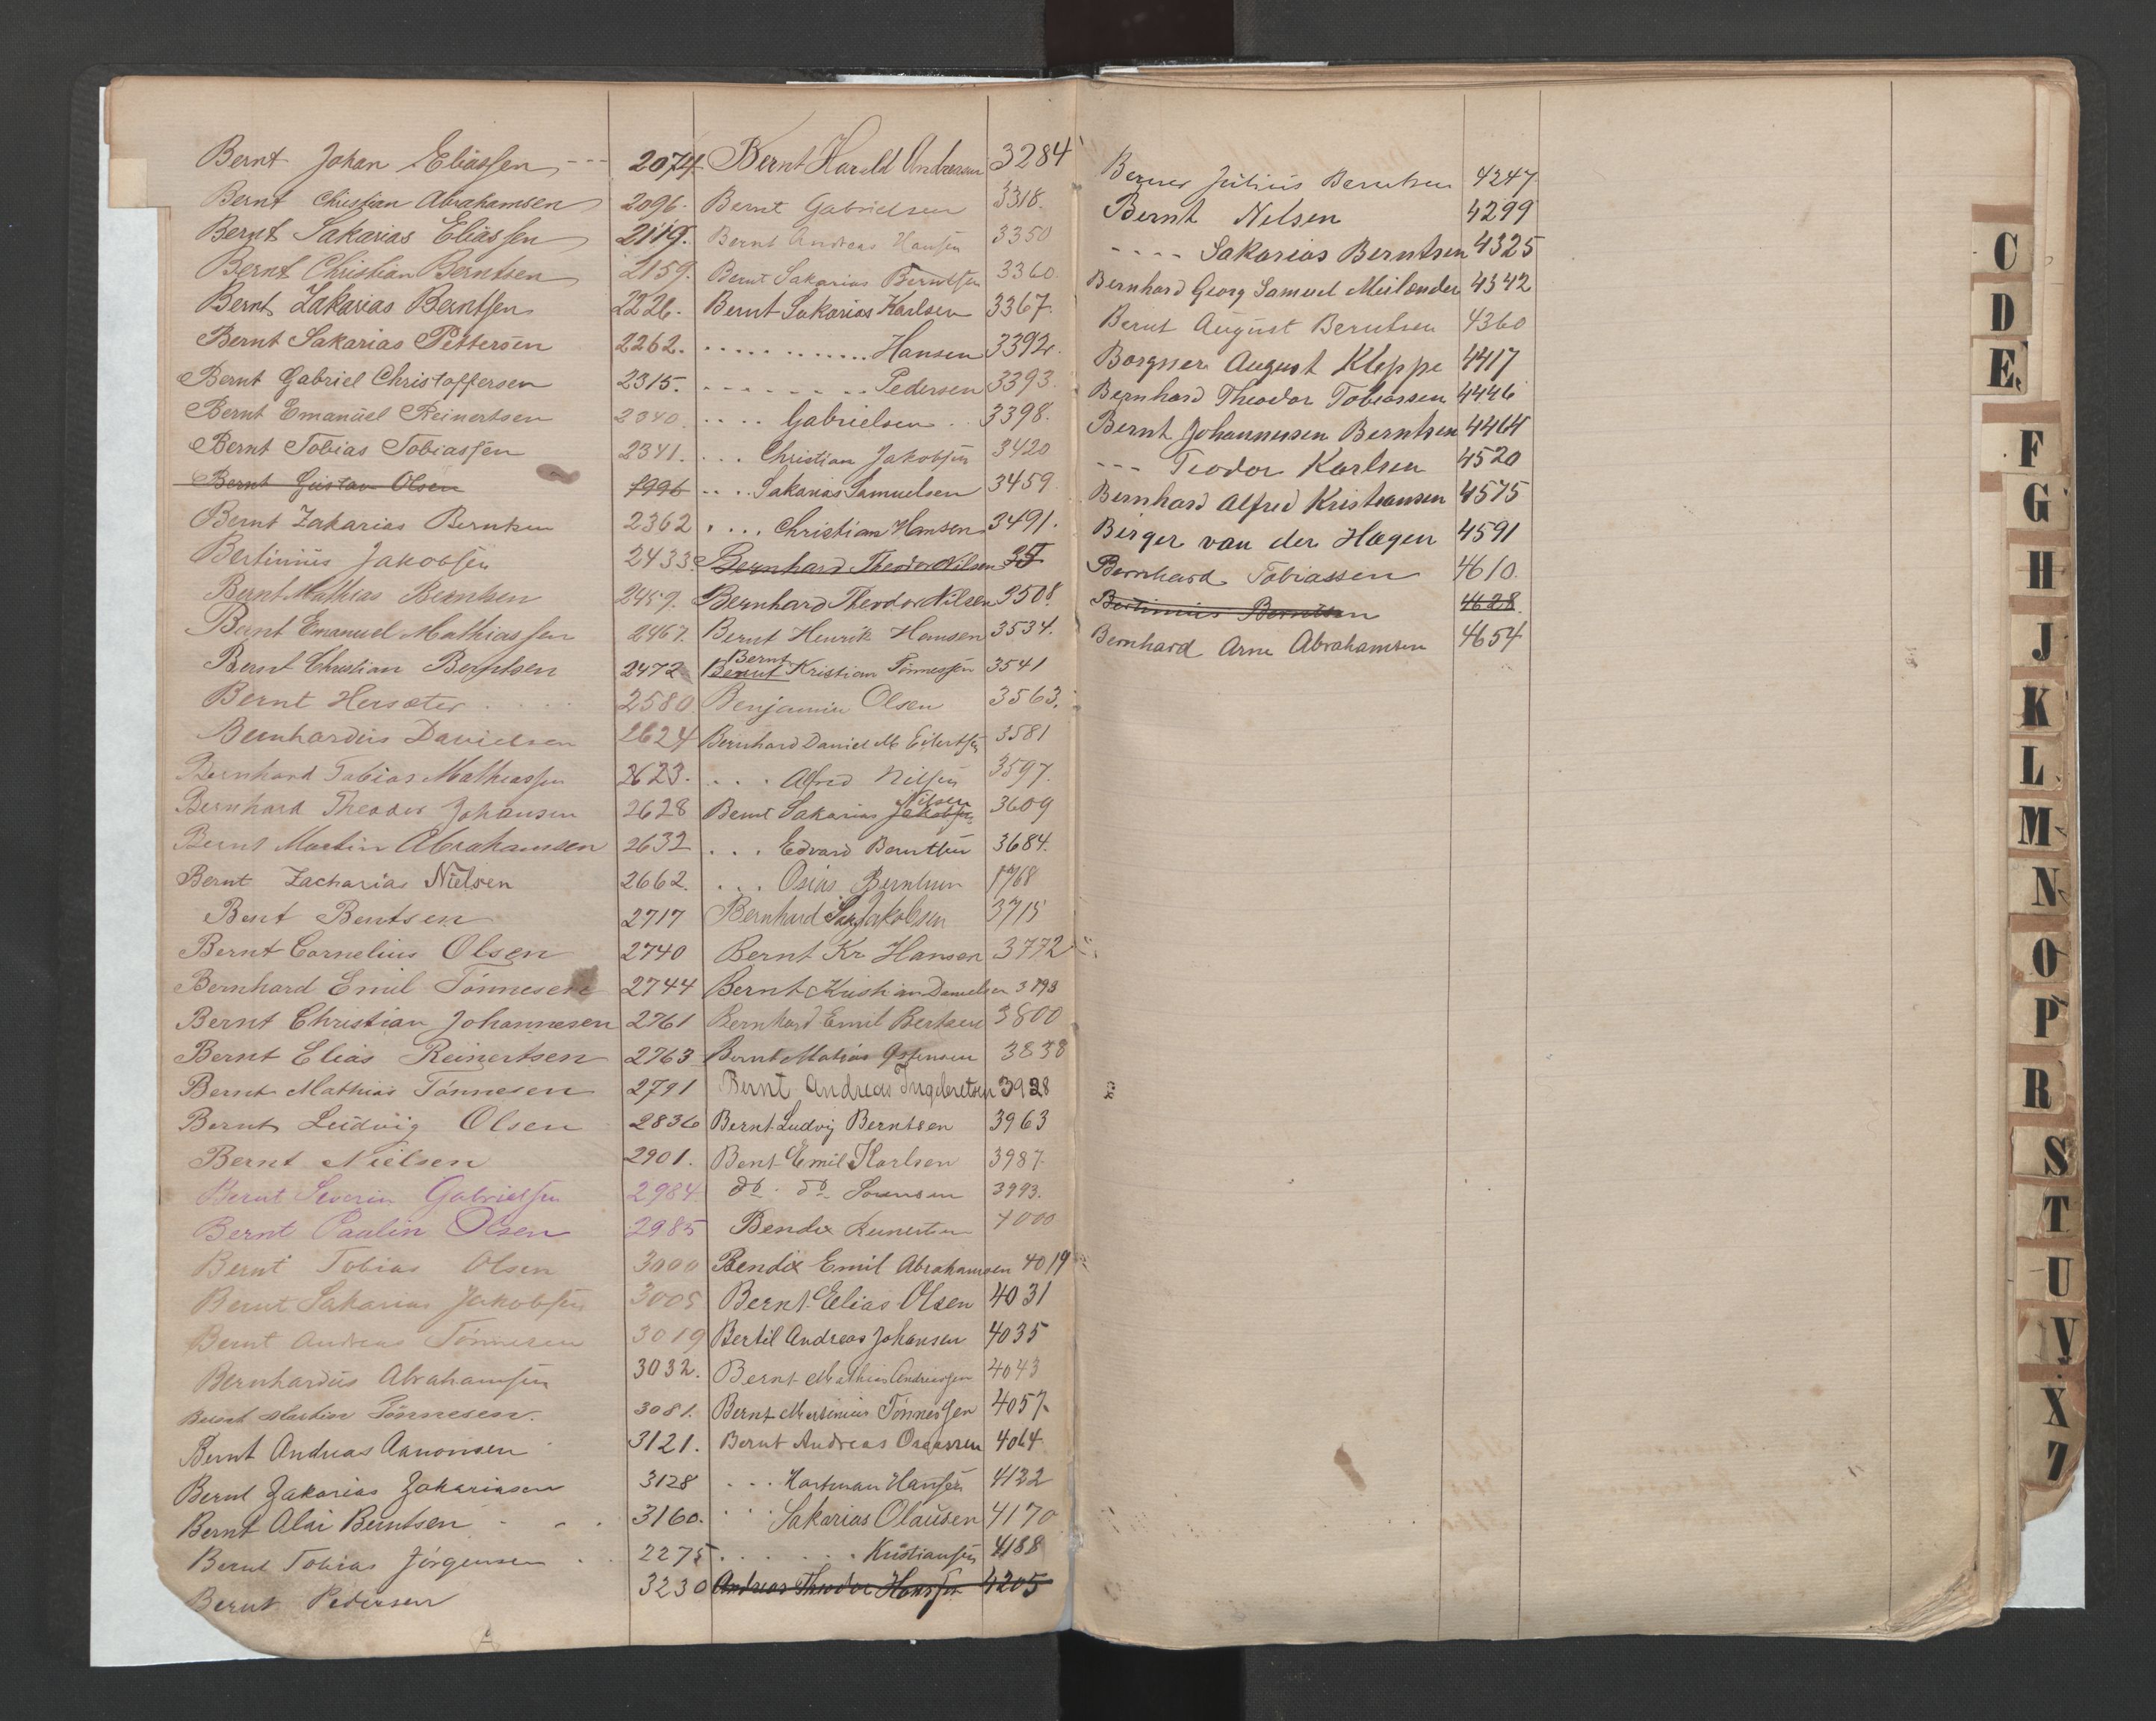 Bernt Johan Eliassen --- 2074
Bernt Christian Abrahamsen 2096.
Bernt Sakarias Eliassen 2119.
Bernt Christian Berntsen 2159.
Bernt Zakarias Berntsen 2226.
Bernt Sakarias Pettersen 2262.
Bernt Gabriel Christoffersen 2315.
Bernt Emanuel Reinertsen 2340.
Bernt Tobias Tobiassen 2341.
Bernt Gustav Olsen 1996
Bernt Zakarias Berntsen 2362
Bertinius Jakobsen 2433.
Bernt Mathias Berntsen 2459.
Bernt Emanuel Mathiassen 2467.
Bernt Christian Berntsen 2472
Bernt Hersæter . . . . 2580
Bernhardus Danielsen 2624
Bernhard Tobias Mathiassen 2623.
Bernhard Theodor Johansen 2628
Bernt Martin Abrahamsen 2632
Bernt Zacharias Nielsen 2662.
Bent Bentsen 2717
Bernt Cornelius Olsen 2740
Bernhard Emil Tønnesen 2744
Bernt Christian Johannesen 2761
Bernt Elias Reinertsen 2763
Bernt Mathias Tønnesen 2791
Bernt Ludvig Olsen 2836
Bernt Nielsen 2901.
Bernt Severin Gabrielsen 2984
Bernt Paulin Olsen 2985
Bernt Tobias Olsen 3000
Bernt Sakarias Jakobsen 3005
Bernt Andreas Tønnesen 3019
Bernhardus Abrahamsen 3032.
Bernt Martin Tønnesen. 3081.
Bernt Andreas Aanonsen 3121.
Bernt Zakarias Zakariasen 3128
Bernt Alai Berntsen - - . 3160.
Bernt Tobias Jørgensen . . 2275
Bernt Pedersen 3230
Bernt Harald Andreasen 3284
Bernt Gabrielsen 3318.
Bernt Andreas Hansen 3350
Bernt Sakarias Berntsen 3360
Bernt Sakarias Karlsen 3367.
............ Hansen 3392.
--------- Pedersen 3393.
.... Gabrielsen . . 3398.
... Christian Jakobsen 3420
.... Sakarias Samuelsen 3459
.... Christian Hansen 3491.
Bernhard Theodor Nilsen 35
Bernhard Theodor Nilsen 3508.
Bernt Henrik Hansen 3534.
Bernt
Bernt Kristian Tønnessen 3541
Benjamin Olsen 3563.
Bernhard Daniel M Eilertsen 3581
... Alfred Nilsen 3597.
Nilsen
Bernt Sakarias Jakobsen 3609
... Edvard Berntsen 3684.
... Osias Berntsen 1768
Bernhard Sak Jakobsen 3715
Bernt Kr. Hansen 3772
Bernt Kristian Danielsen 3793
Bernhard Emil Bertsen 3800
Bernt Matias 3838
Bernt Andreas Ingebretsen 3928
Bernt Ludvig Berntsen 3963
Bent Emil Karlsen 3987
do. do. Sørensen 3993.
Bendix Reinertsen 4000
Bendix Emil Abrahamsen 4019
Bernt Elias Olsen 4031
Bertil Andreas Johansen 4035
Bernt Mathias Andreassen 4043
Bernt Martinius Tønnessen 4057
Bernt Andreas 4064
... Hartman Hansen 4132
. . Sakarias Olausen 4170
. . . . . . Kristiansen 4188
Andreas Theodor Hanssen 4205
Julius Berntsen 4247
Bernt Nelsen 4299
---- Sakarias Berntsen 4325
Bernhard Georg Samuel Meilænder 4342
Bernt August Berntsen 4360
August Kleppe 4417
Bernhard Theodor Tobiassen 4446
Bernt Johannesen Berntsen 4464
--- Teodor Karlsen 4520
Bernhard Alfred Kristiansen 4575
Birger van der Hagen 4591
Bernhard Tobiassen 4610.
Bertinius Berntsen 4628
Bernhard Arne Abrahamsen 4654
C
D
E.
F
G
H
J
K
L
M
N
O
P
R
S
T
U
V
X
Z